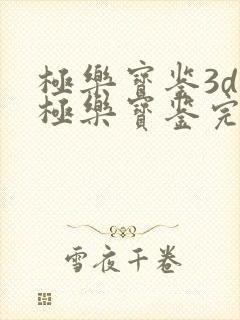 極樂寶鉴3d
極樂寶鉴完
雪夜千卷